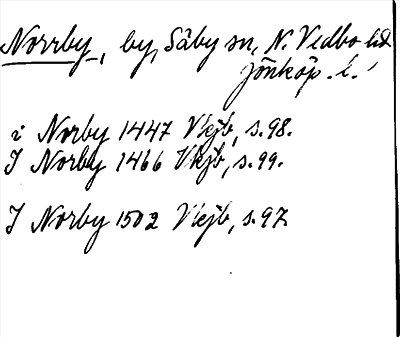 Norrby, by, Säby sn, N. Vedbo hd
Jönköp. l.
i Norby 1447 Vlejb, s. 98.
I Norby 1466 Vlejb, s. 99.
I Norby 1502 Vlejb, s. 97